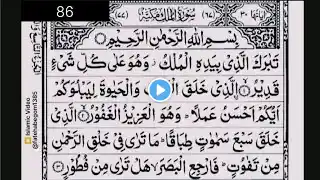 86
اٰیاتها ٣٠
(٦٧) سُوْرَةُ الْمُلْكِ مَكِّيَّةٌ
(٧٧)
بِسْمِ اللّٰهِ الرَّحْمٰنِ الرَّحِيْمِ
تَبٰرَكَ الَّذِيْ بِيَدِهِ الْمُلْكُ وَهُوَ عَلٰى كُلِّ شَيْءٍ
قَدِيْرُ الَّذِيْ خَلَقَ الْمَوْتَ وَالْحَيٰوةَ لِيَبْلُوَكُمْ
اَيُّكُمْ اَحْسَنُ عَمَلًا وَهُوَ الْعَزِيْزُ الْغَفُوْرُ الَّذِيْ
خَلَقَ سَبْعَ سَمٰوٰتٍ طِبَاقًا مَا تَرٰى فِيْ خَلْقِ الرَّحْمٰنِ
مِنْ تَفٰوُتٍ فَارْجِعِ الْبَصَرَ هَلْ تَرٰى مِنْ فُطُوْرٍ
Islamic Video
@fatehabegom1385